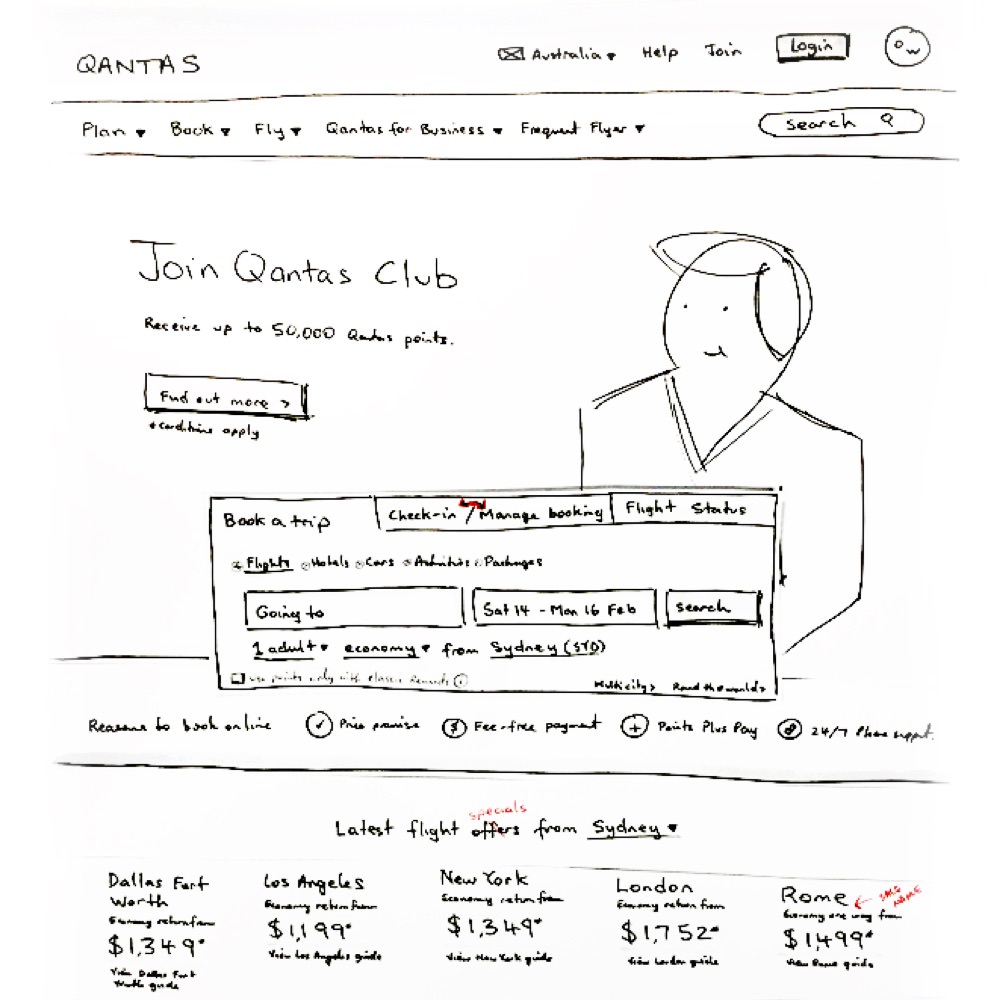 QANTAS
Australia Help Join Login OW
Plan Book Fly Qantas for Business Frequent Flyer Search
Join Qantas Club
Receive up to 50,000 Qantas points.
Find out more >
*conditions apply
Book a trip Check-in / Manage booking Flight Status
Flights Hotels Cars Activities Packages
Going to Sat 14 - Mon 16 Feb Search
1 adult economy from Sydney (SYD)
use points only with Classic Rewards i
Multi city> Round the world>
Reasons to book online Price promise $ Fee-free payment + Points Plus Pay 24/7 Phone support.
specials
Latest flight offers from Sydney
Dallas Fort Worth
Economy return from
$1,349*
View Dallas Fort Worth guide
Los Angeles
Economy return from
$1,199*
View Los Angeles guide
New York
Economy return from
$1,349*
View New York guide
London
Economy return from
$1,752*
View London guide
Rome
Economy one way from
$1499*
View Rome guide